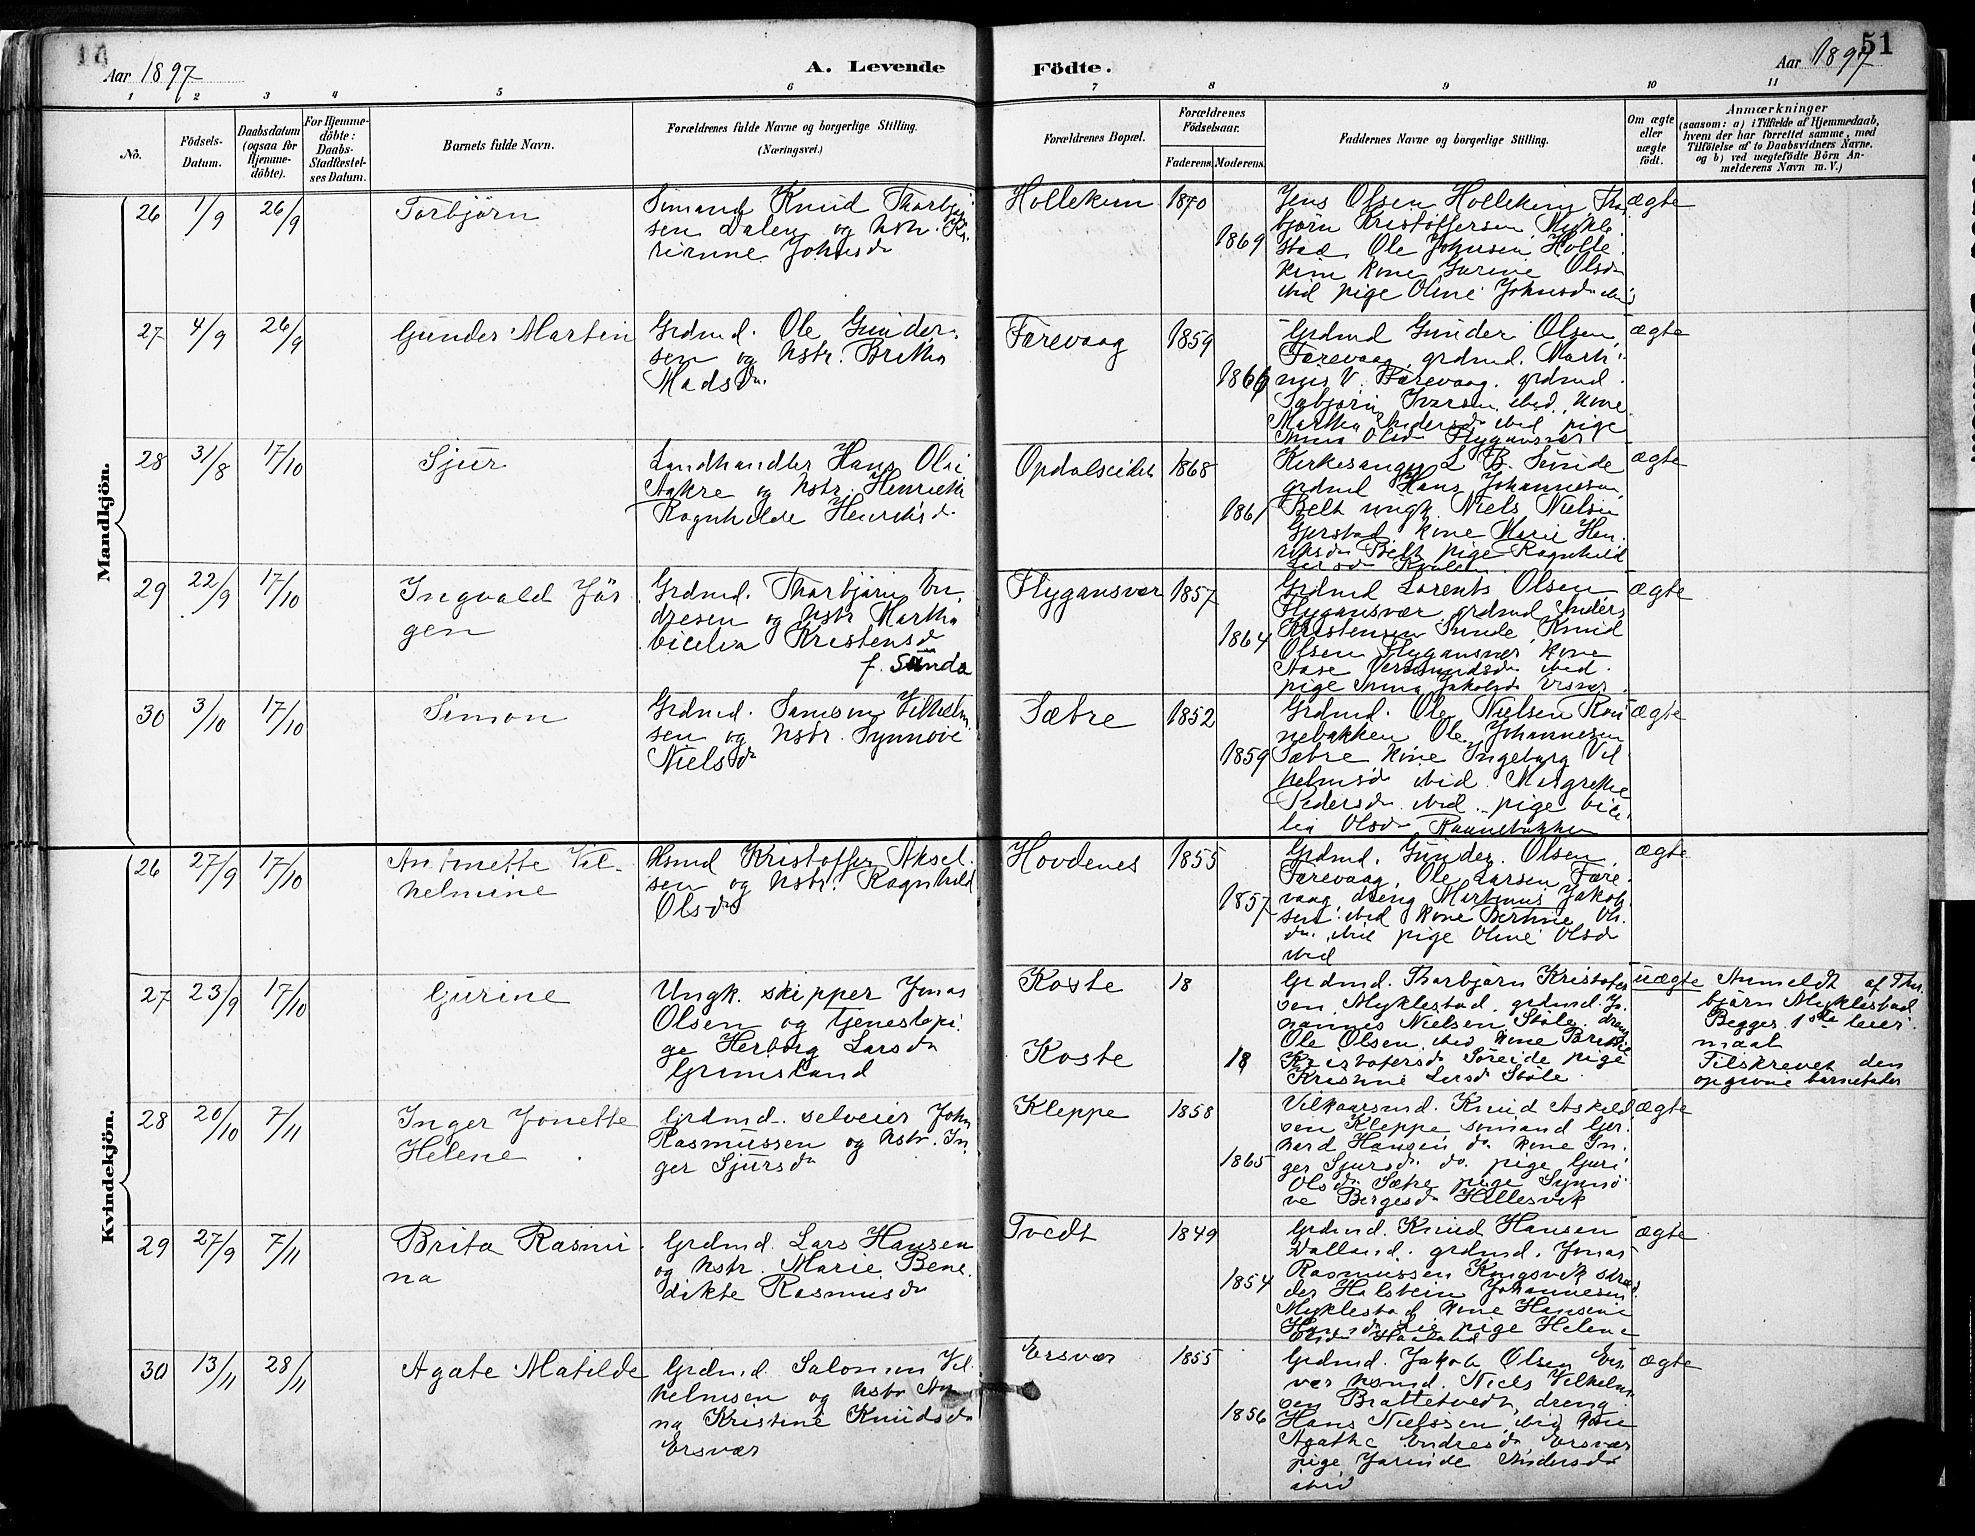 Aar 1897
A. Levende
Födte.
Aar 1897
51
1 2 3 4 5 6 7 8 9 10 11
No.
Födsels-
Datum.
Daabsdatum
(ogsaa for
Hjemme-
döbte).
For Hjemme-
döbte:
Daabs-
Stadfæstel-
ses Datum.
Barnets fulde Navn.
Forældrenes fulde Navne og borgerlige Stilling.
(Næringsvei.)
Forældrenes Bopæl.
Forældrenes
Födselsaar.
Faderens. Moderens.
Faddernes Navne og borgerlige Stilling.
Om ægte
eller
uægte
födt.
Anmærkninger
(saasom: a) i Tilfælde af Hjemmedaab,
hvem der har forrettet samme, med
Tilföielse af to Daabsvidners Navne.
og b) ved uægtefödte Börn An-
melderens Navn m. V.)
Mandkjön.
26 1/9 26/9
Torbjörn
Sömand Knud Thorbjörn
sen Dalen og hstr. Ka
Johnsd
Hollekim
1870
1869
Jens Olsen Hollekim Thor
björn Kristoffersen Mykle
stad, Ole Johnsen Holle
kim kone Gurine Olsd
ibid pige Oline Johnsd ibid
ægte
27 4/9 26/9
Gunder Martin
Grdmd. Ole Gunder
sen og hstr. Britha
Madsd.
Færevaag
1859
1866
Grdmd Gunder Olsen
Færevaag, grdmd. Marti
nus V. Færevaag. grdmd
Sæbjörn Iversen ibid, kone
Martha Andersd ibid pige
Anna Olsd Flygansvær
ægte
28 31/8 17/10
Sjur
Landhandler Hans Olai
Aakre og hstr. Henrikke
Ragnhilde Henriksd
Opdalseidet
1868
1861
Kirkesanger L. B. Sunde
grdmd Hans Johannesen
Belt ungk. Niels Nielsen
Gjerstad, kone Marie Hen
riksd Belt pige Ragnhild
Larsd
ægte
29 22/9 17/10
Ingvald Jör
gen
Grdmd. Thorbjörn En
dresen og hstr Martha
Cicelia Kristensd
f. Sunde
Flygansvær
1857
1864
Grdmd Lorents Olsen
Flygansvær grdmd Anders
Kristensen Sunde, Knud
Olsen Flygansvær, kone
Aase Vermundsd ibid
pige Anna Jakobsd Visnes
ægte
30 3/10 17/10
Simon
Grdmd. Samson Vilhelm
sen og hstr. Synnöve
Nielsd
Sætre
1852
1859
Grdmd. Ole Nielsen Rau
nebakken Ole Johannesen
Sætre kone Ingeborg Vil
helmsd ibid. Margrethe
Pedersd ibid. pige Cice
lia Olsd Raunebakken
ægte
Kvindekjön.
26 27/9 17/10
Antonette Vil-
helmine
Hsmd Kristoffer Aksel
sen og hstr. Ragnhild
Olsd
Hovdenes
1855
1857
Grdmd. Gunder. Olsen
Færevaag, Ole Larsen Fære
vaag dreng Martinus Jakob
sen ibid kone Bertine Ols
d. ibid pige Oline Olsd
ibid
ægte
27 23/9 17/10
Gurine
Ungk. skipper Jonas
Olsen og tjenestepi
ge Herborg Larsd
Grimsland
Koste
Koste
18
18
Grdmd. Thorbjörn Kristofer
sen Myklestad, grdmd. Jo
hannes Nielsen Stöle, dreng
Ole Olsen ibid kone Brithe
Kristofersd Söreide pige
Kristine Larsd Stöle
uægte
Anmeldt af Thor
björn Myklestad
Begges 1ste leier
maal
Tilskrevet den
opgivne barnefader
28 20/10 7/11
Inger Jonette
Helene
Grdmd. selveier John
Rasmussen og hstr. In
ger Sjursd
Kleppe
1858
1865
Vilkaarsmd. Knud Askild
sen Kleppe sömand Ger
hard Hansen do kone In
ger Sjursd do. pige Guri
Olsd Sætre pige Synnö
ve Børgesd Hillesvik
ægte
29 27/9 7/11
Brita Rasmi
na
Grdmd. Lars Hansen
og hstr. Marie Bene
dikte Rasmusd
Tvedt
1849
1854
Grdmd. Knud Hansen
Valland. grdmd. Jonas
Rasmussen Kongsvik skræd
der Halstein Johannesen
Myklestad kone Hansine
Hansd Lie pige Helene
ægte
30 13/11 28/11
Agate Matilde
Grdmd. Salomon Vil
helmsen og hstr An
na Kristine Knudsd
Ersvær
Ersvær
1855
1856
Grdmd. Jakob Olsen Ers
vær hsmd. Niels Vilhelm
sen Brattetvedt, dreng
Hans Nielssen ibid kone
Agathe Endresd, Ersvær
pige Jarinde Andersd
ibid
ægte